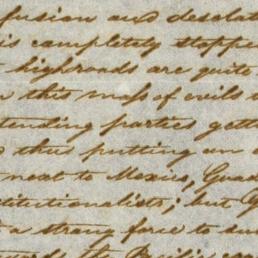 fusion and desolat
is completely stopped
highroads are quite
this mass of evils
tending parties gett
thus putting an
next to Mexico, Guad
titutionalists; but
a strong force to